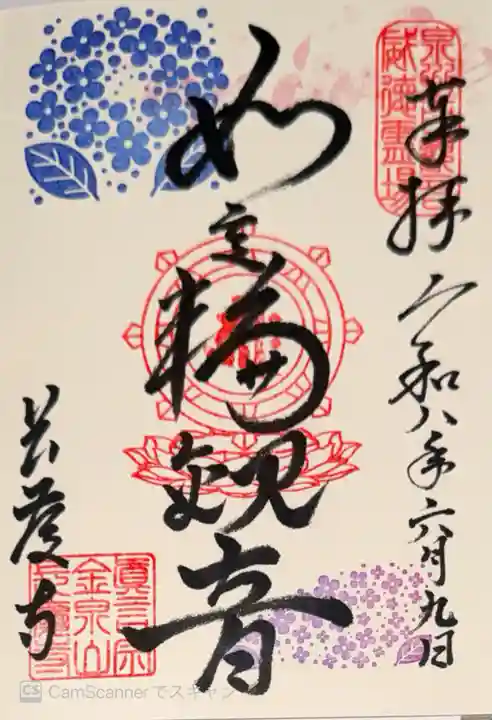 奉拝 令和八年六月九日
威徳霊場
如意輪観音
長慶寺
眞言宗
金泉山
長慶寺
CS CamScannerでスキャン